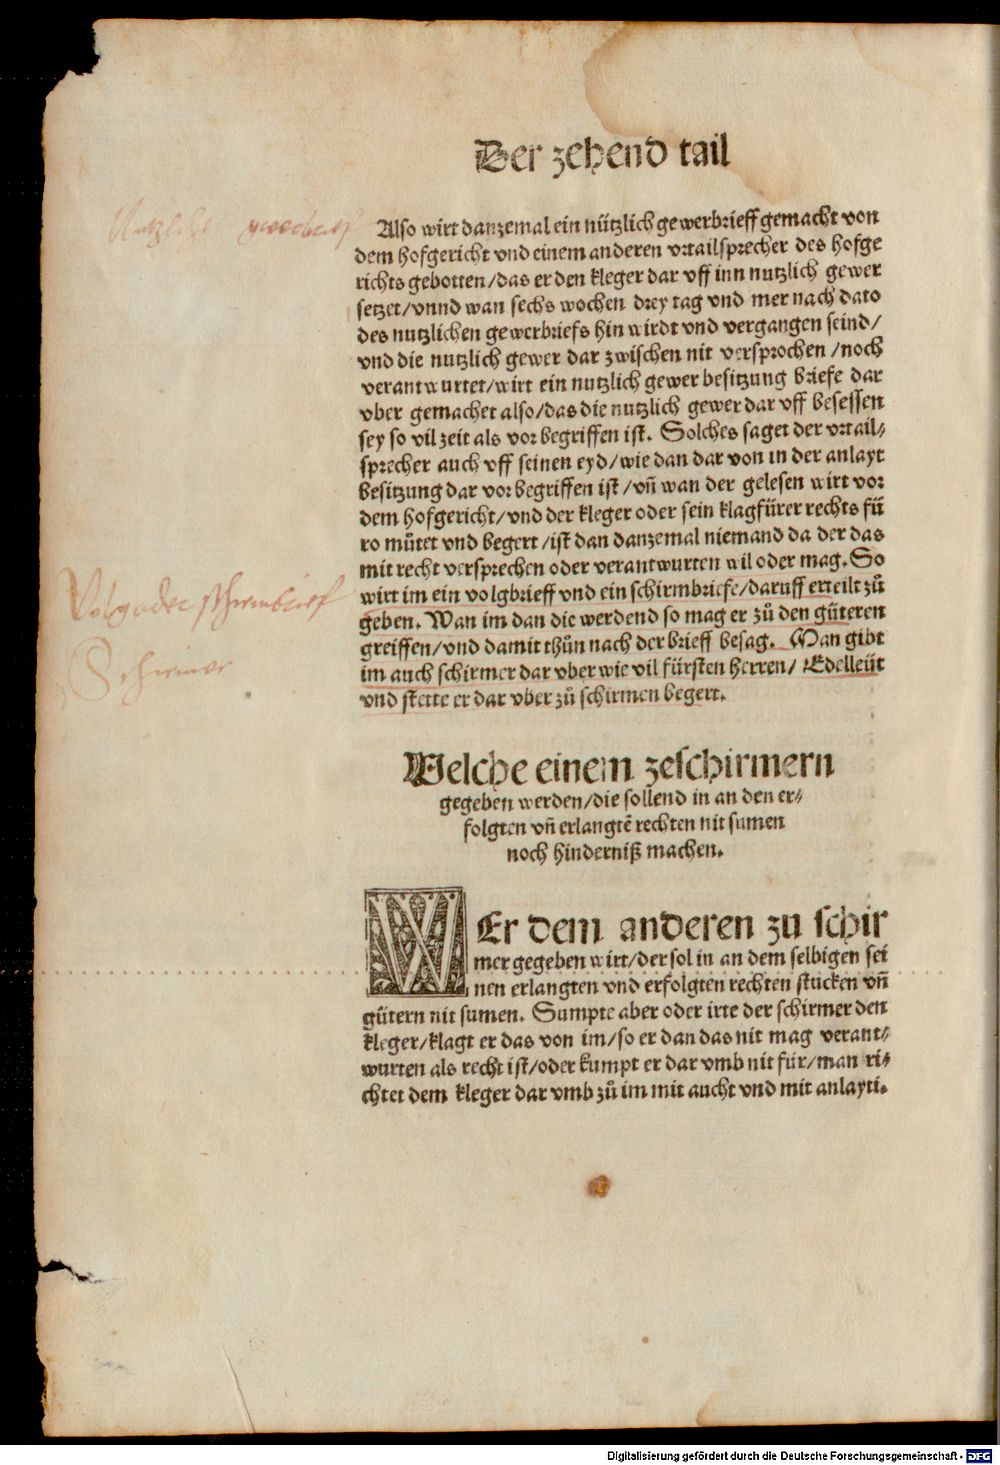 Der zehend tail
Also wirt danzemal ein nützlich gewerbrieff gemacht von
dem hofgericht vnd einem anderen vrtailsprecher des hofge
richts gebotten/das er den kleger dar vff inn nutzlich gewer
setzet/vnnd wan sechs wochen drey tag vnd mer nach dato
des nutzlichen gewerbriefs hin wirdt vnd vergangen seind/
vnd die nutzlich gewer dar zwischen nit versprochen/noch
verantwurtet/wirt ein nutzlich gewer besitzung briefe dar
vber gemachet also/das die nutzlich gewer dar vff besessen
sey so vil zeit als vor begriffen ist. Solches saget der vrtail⸗
sprecher auch vff seinen eyd/wie dan dar von in der anlayt
besitzung dar vor begriffen ist/vñ wan der gelesen wirt vor
dem hofgericht/vnd der kleger oder sein klagfürer rechts fü
ro mütet vnd begert/ist dan danzemal niemand da der das
mit recht versprechen oder verantwurten wil oder mag. So
wirt im ein volgbrieff vnd ein schirmbriefe/daruff erteilt zů
geben. Wan im dan die werdend so mag er zů den güteren
greiffen/vnd damit thůn nach der brieff besag. Man gibt
im auch schirmer dar vber wie vil fürsten herren/ Edelleüt
vnd stette er dar vber zů schirmen begert.
Nutzliche gwerbrief
Volg oder schirmbrief
Schirmer
Welche einem zeschirmern
gegeben werden/die sollend in an den er⸗
folgten vñ erlangtē rechten nit sumen
noch hinderniß machen.
WEr dem anderen zu schir
mer gegeben wirt/der sol in an dem selbigen sei
nen erlangten vnd erfolgten rechten stucken vñ
gütern nit sumen. Sumpte aber oder irte der schirmer den
kleger/klagt er das von im/so er dan das nit mag verant⸗
wurten als recht ist/oder kumpt er dar vmb nit für/man ri⸗
chtet dem kleger dar vmb zů im mit aucht vnd mit anlayti.
Digitalisierung gefördert durch die Deutsche Forschungsgemeinschaft - DFG